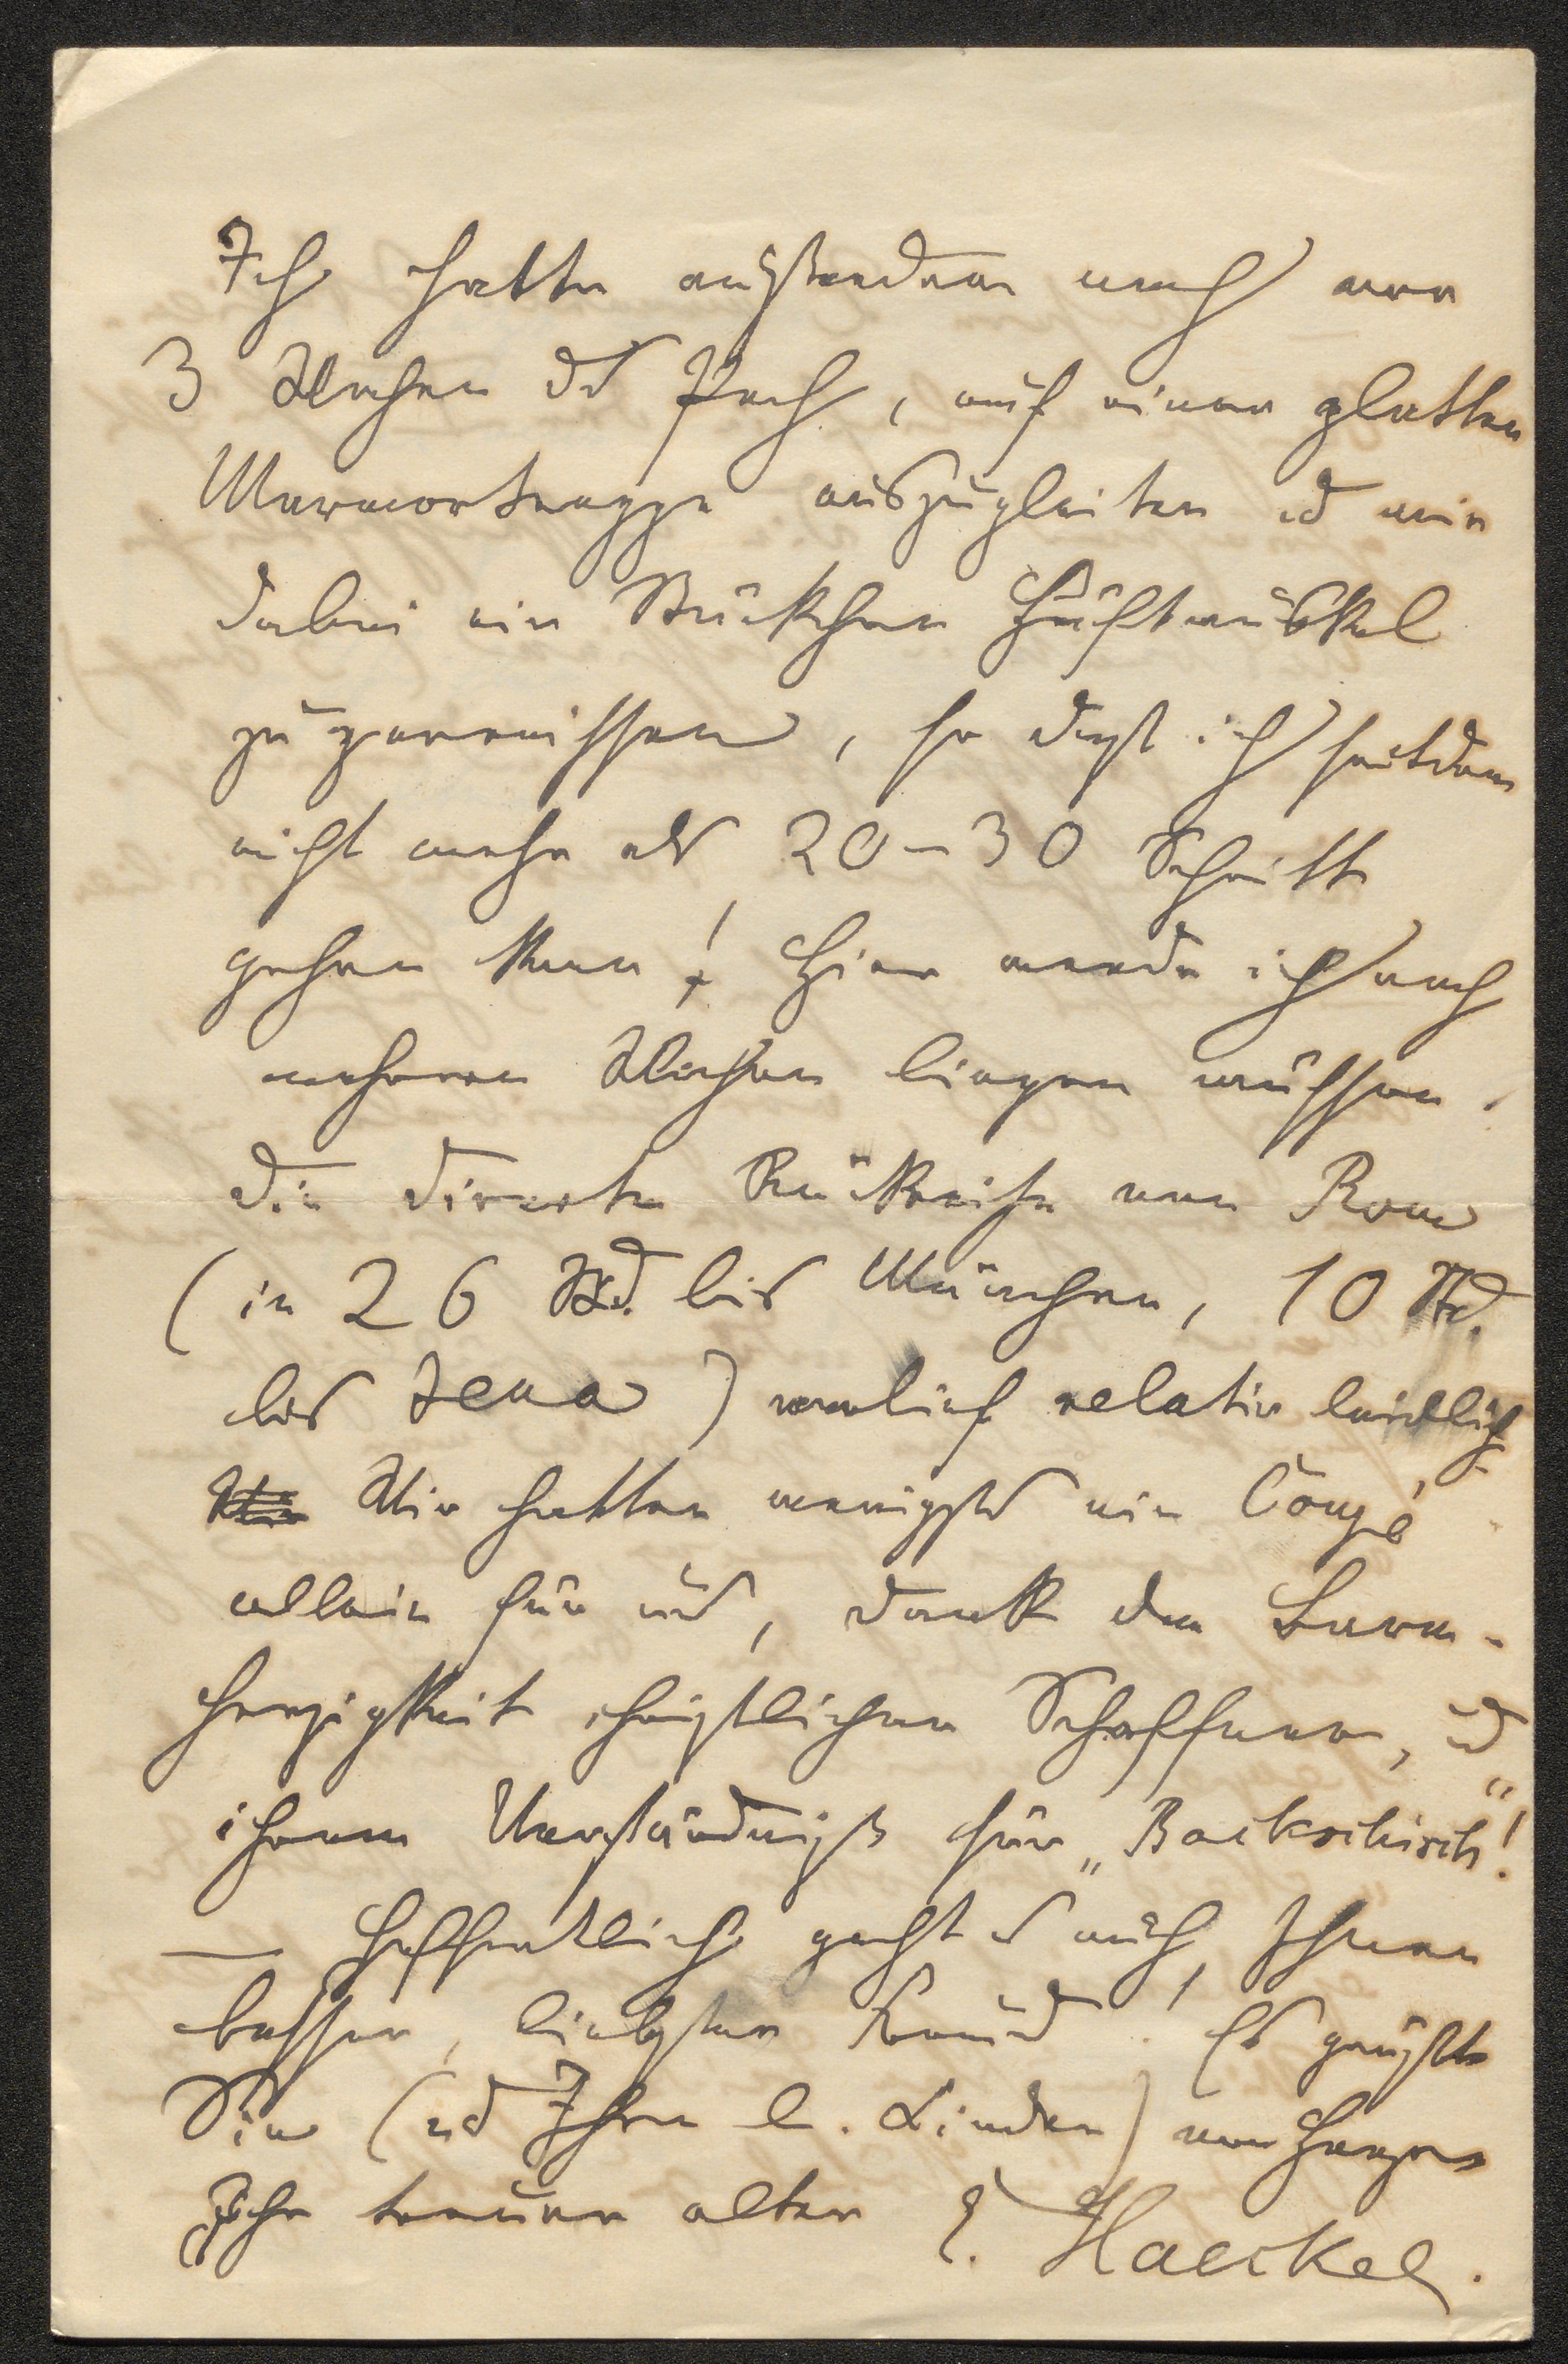 Ich hatte außerdem noch vor
3 Wochen ds Pech, auf einer glatten
Marmortreppe auszugleiten ud mir
dabei ein Stückchen Hüftmuskel
zu zerreissen, so daß ich seitdem
nicht mehr als 20–30 Schritte
gehen kann! Hier werde ich noch
mehrere Wochen liegen müssen.
Die directe Rückreise von Rom
(in 26 Std. bis München, 10 Std.
bis Jena) verlief relativ leidlich.
Wir hatten wenigsts ein Coupé
allein für uns, dank der Barm-
herzigkeit christlicher Schaffner, ud
ihrem Verständniß für „Backschisch“!
— Hoffentlich geht es auch Ihnen
besser, liebster Freund! Es grüßt
Sie (ud Ihre l. Kinder) von Herzen
Ihr treuer alter E. Haeckel.